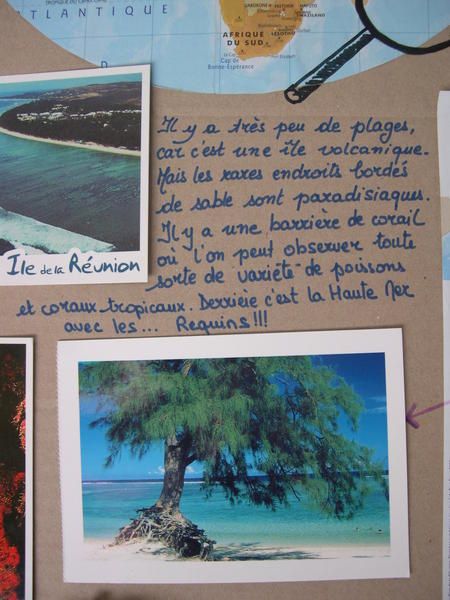 ATLANTIQUE
AFRIQUE
DU SUD
Cap de
Bonne-Espérance
LESOTHO
SWAZILAND
Il y a très peu de plages,
car c'est une île volcanique.
Mais les rares endroits bordés
de sable sont paradisiaques.
Il y a une barrière de corail
où l'on peut observer toute
sorte de variété de poissons
et coraux tropicaux. Derrière c'est la Haute Mer
avec les... Requins!!!
Ile de la Réunion